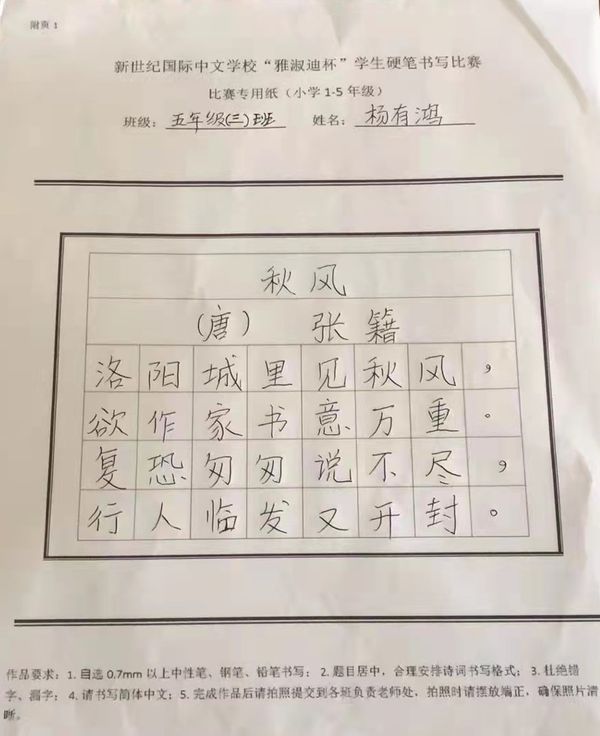 附页 1
新世纪国际中文学校“雅淑迪杯”学生硬笔书写比赛
比赛专用纸（小学 1-5 年级）
班级：五年级(三)班 姓名：杨有鸿
秋风
(唐) 张籍
洛阳城里见秋风，
欲作家书意万重。
复恐匆匆说不尽，
行人临发又开封。
作品要求：1. 自选 0.7mm 以上中性笔、钢笔、铅笔书写；2. 题目居中，合理安排诗词书写格式；3. 杜绝错
字、漏字；4. 请书写简体中文；5. 完成作品后请拍照提交到各班负责老师处，拍照时请摆放端正，确保照片清
晰。